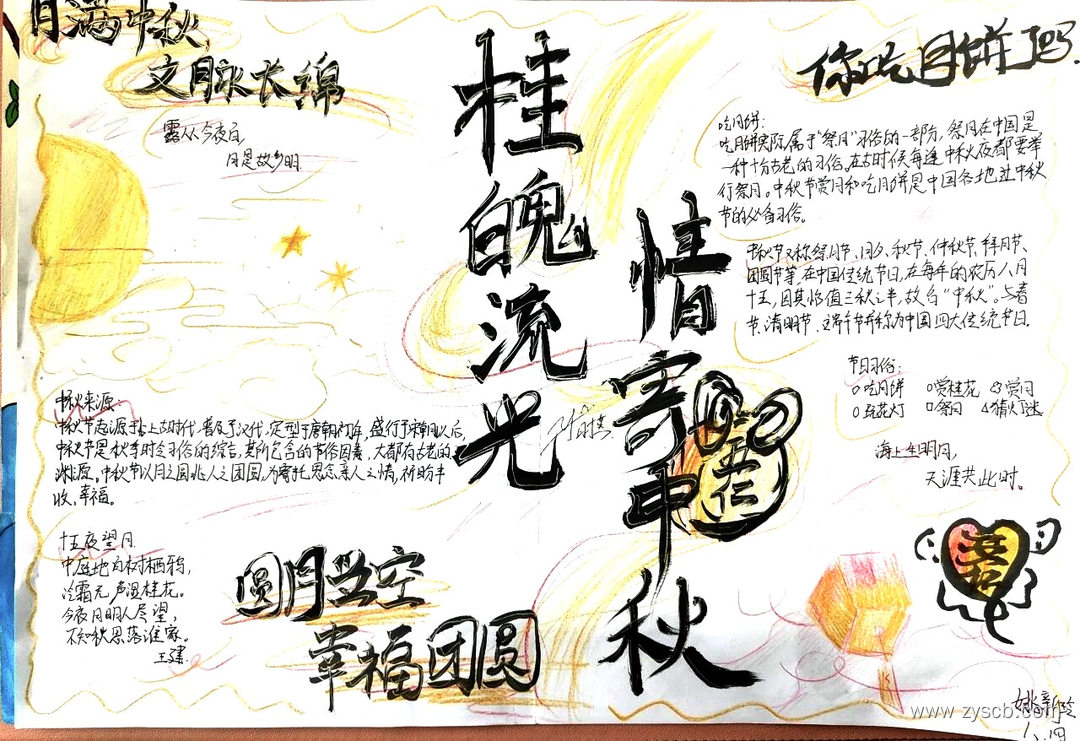 月满中秋
文脉长绵
露从今夜白
月是故乡明
桂魄流光
情寄中秋
你吃月饼了吗.
吃月饼:
吃月饼实际属于“祭月”习俗的一部分,祭月在中国是
一种十分古老的习俗。在古时候每逢中秋夜都要举
行祭月。中秋节赏月和吃月饼是中国各地过中秋
节的必备习俗。
中秋节又称祭月节、月夕、秋节、仲秋节、拜月节、
团圆节等,在中国传统节日,在每年的农历八月
十五,因其恰值三秋之半,故名“中秋”。与春
节、清明节、端午节并称为中国四大传统节日.
节日习俗:
吃月饼 赏桂花 赏月
玩花灯 祭月 猜灯谜
海上生明月,
天涯共此时。
中秋来源:
中秋节起源于上古时代,普及于汉代,定型于唐朝初年,盛行于宋朝以后,
中秋节是秋季时令习俗的综合,其所包含的节俗因素,大都有古老的
渊源。中秋节以月之圆兆人之团圆,为寄托思念亲人之情,祈盼丰
收、幸福。
十五夜望月
中庭地白树栖鸦,
冷霜无声湿桂花。
今夜月明人尽望,
不知秋思落谁家。
王建
圆月当空
幸福团圆
姚新玲
八、四
www.zyscb.com